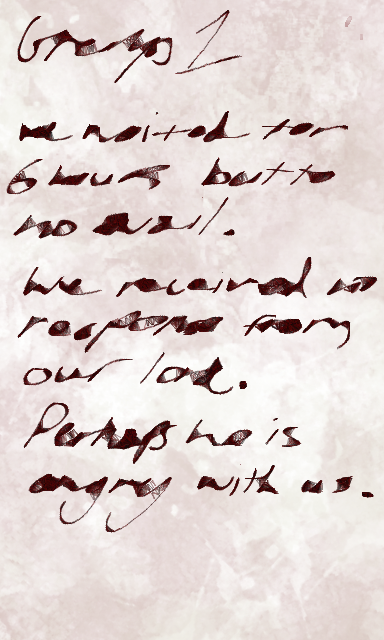 Groups 1
we waited for
6 hours but to
no avail.
We received no
response from
our lord.
Perhaps he is
angry with us.